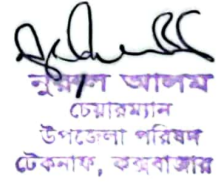 নুরুল আলম
চেয়ারম্যান
উপজেলা পরিষদ
টেকনাফ, কক্সবাজার